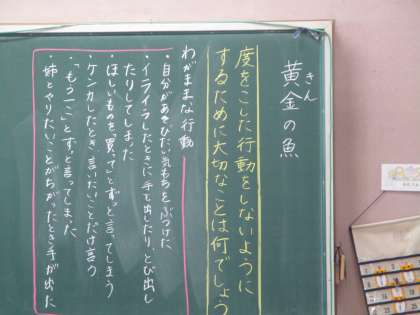 黄金の魚
きん
度をこした行動をしないように
するために大切なことは何でしょう
わがままな行動
・自分があそびたい気もちをぶつけた
・イライラしたときに手を出したり、とび出し
たりしてしまった
・ほしいものを「買って」とずっと言ってしまう
・ケンカしたとき言いたいことだけ言う
・「もう一こ」とずっと言ってしまった
・姉とやりたいことがちがったとき手が出た